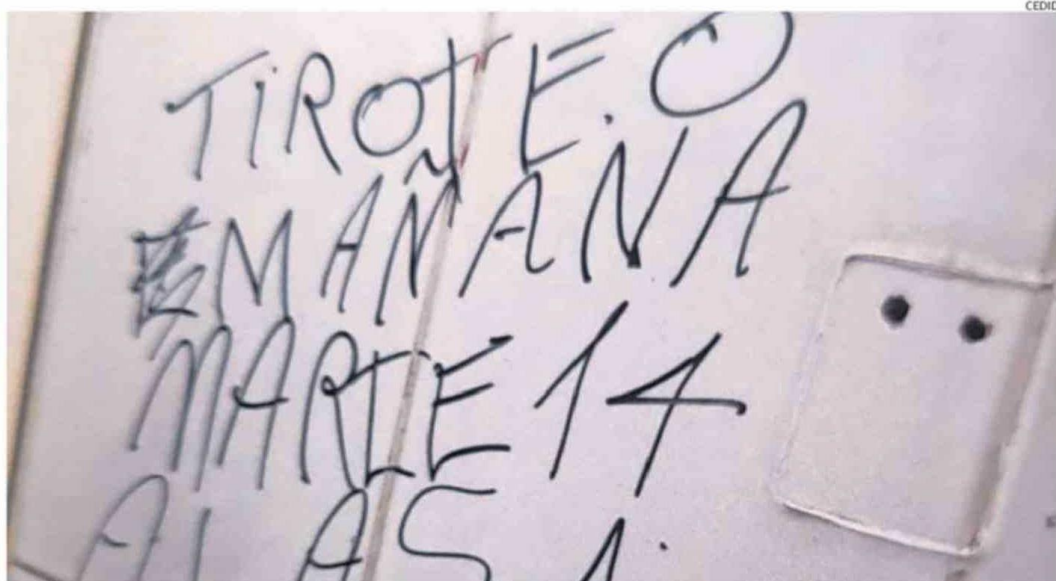 CEDID
TiROTE.O
MAÑANA
MARTE 14
A LAS 1